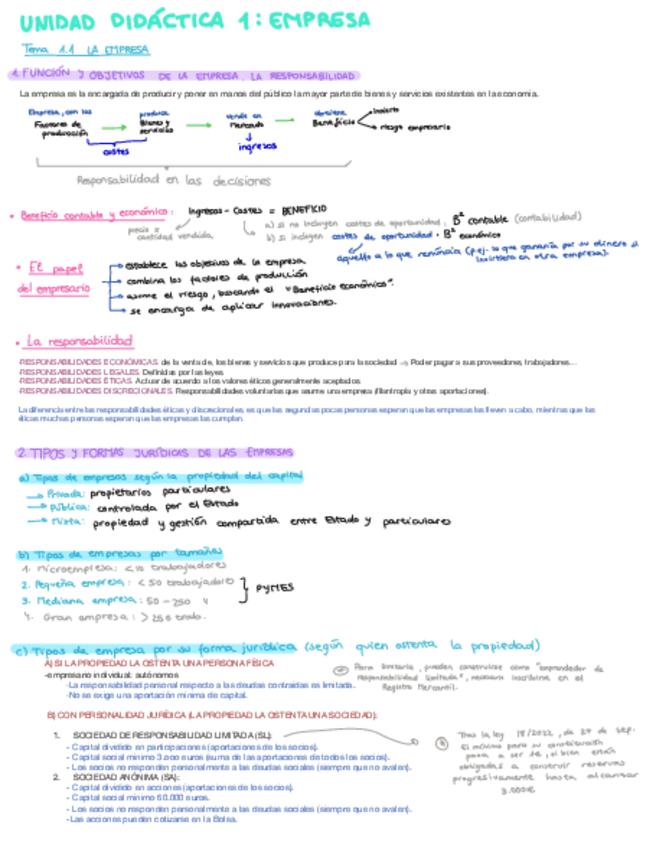 UNIDAD DIDÁCTICA 1: EMPRESA
Tema 1.1 LA EMPRESA
1. FUNCIÓN Y OBJETIVOS DE LA EMPRESA. LA RESPONSABILIDAD
La empresa es la encargada de producir y poner en manos del público la mayor parte de bienes y servicios existentes en la economía.
Empresa, con los Factores de producción → produce Bienes y servicios → vende en Mercado → obtiene Beneficio
riesgo empresario
costes
ingresos
Responsabilidad en las decisiones
• Beneficio contable y económico: Ingresos - Costes = BENEFICIO
precio x cantidad vendida
a) si no incluyen costes de oportunidad: Bº contable (contabilidad)
b) si incluyen costes de oportunidad: Bº económico
aquello a lo que renuncia (p.ej: lo que ganaría por su dinero si invirtiera en otra empresa).
• El papel del empresario
establece los objetivos de la empresa
combina los factores de producción
asume el riesgo, buscando el "Beneficio económico".
se encarga de aplicar innovaciones.
• La responsabilidad
-RESPONSABILIDADES ECONÓMICAS: de la venta de, los bienes y servicios que produce para la sociedad --> Poder pagar a sus proveedores, trabajadores...
-RESPONSABILIDADES LEGALES: Definidas por las leyes
-RESPONSABILIDADES ÉTICAS: Actuar de acuerdo a los valores éticos generalmente aceptados
-RESPONSABILIDADES DISCRECIONALES: Responsabilidades voluntarias que asume una empresa (filantropía y otras aportaciones).
La diferencia entre las responsabilidades éticas y discrecionales, es que las segundas pocas personas esperan que las empresas las lleven a cabo, mientras que las
éticas muchas personas esperan que las empresas las cumplan.
2. TIPOS Y FORMAS JURÍDICAS DE LAS EMPRESAS
a) Tipos de empresas según la propiedad del capital
→ Privada: propietarios particulares
→ Pública: controlada por el Estado
→ Mixta: propiedad y gestión compartida entre Estado y particulares
b) Tipos de empresas por tamaños
1. Microempresa: < 10 trabajadores
2. Pequeña empresa: < 50 trabajadores
3. Mediana empresa: 50 - 250 "
PYMES
4. Gran empresa: > 250 trab.
c) Tipos de empresa por su forma jurídica (según quien ostenta la propiedad)
A) SI LA PROPIEDAD LA OSTENTA UNA PERSONA FÍSICA
-empresario individual: autónomos
-La responsabilidad personal respecto a las deudas contraídas es ilimitada.
-No se exige una aportación mínima de capital.
Para limitarla, pueden constituirse como "emprendedor de
Responsabilidad limitada", necesario inscribirse en el
Registro Mercantil.
B) CON PERSONALIDAD JURÍDICA (LA PROPIEDAD LA OSTENTA UNA SOCIEDAD):
1. SOCIEDAD DE RESPONSABILIDAD LIMITADA (SL):
- Capital dividido en participaciones (aportaciones de los socios).
- Capital social mínimo 3.000 euros (suma de las aportaciones de todos los socios).
- Los socios no responden personalmente a las deudas sociales (siempre que no avalen).
2. SOCIEDAD ANÓNIMA (SA):
- Capital dividido en acciones (aportaciones de los socios).
- Capital social mínimo 60.000 euros.
- Los socios no responden personalmente a las deudas sociales (siempre que no avalen).
-Las acciones pueden cotizarse en la Bolsa.
Tras la ley 18/2022, de 28 de sep.
El mínimo para su constitución
pasa a ser 1€, si bien están
obligadas a construir reservas
progresivamente hasta alcanzar
3.000€